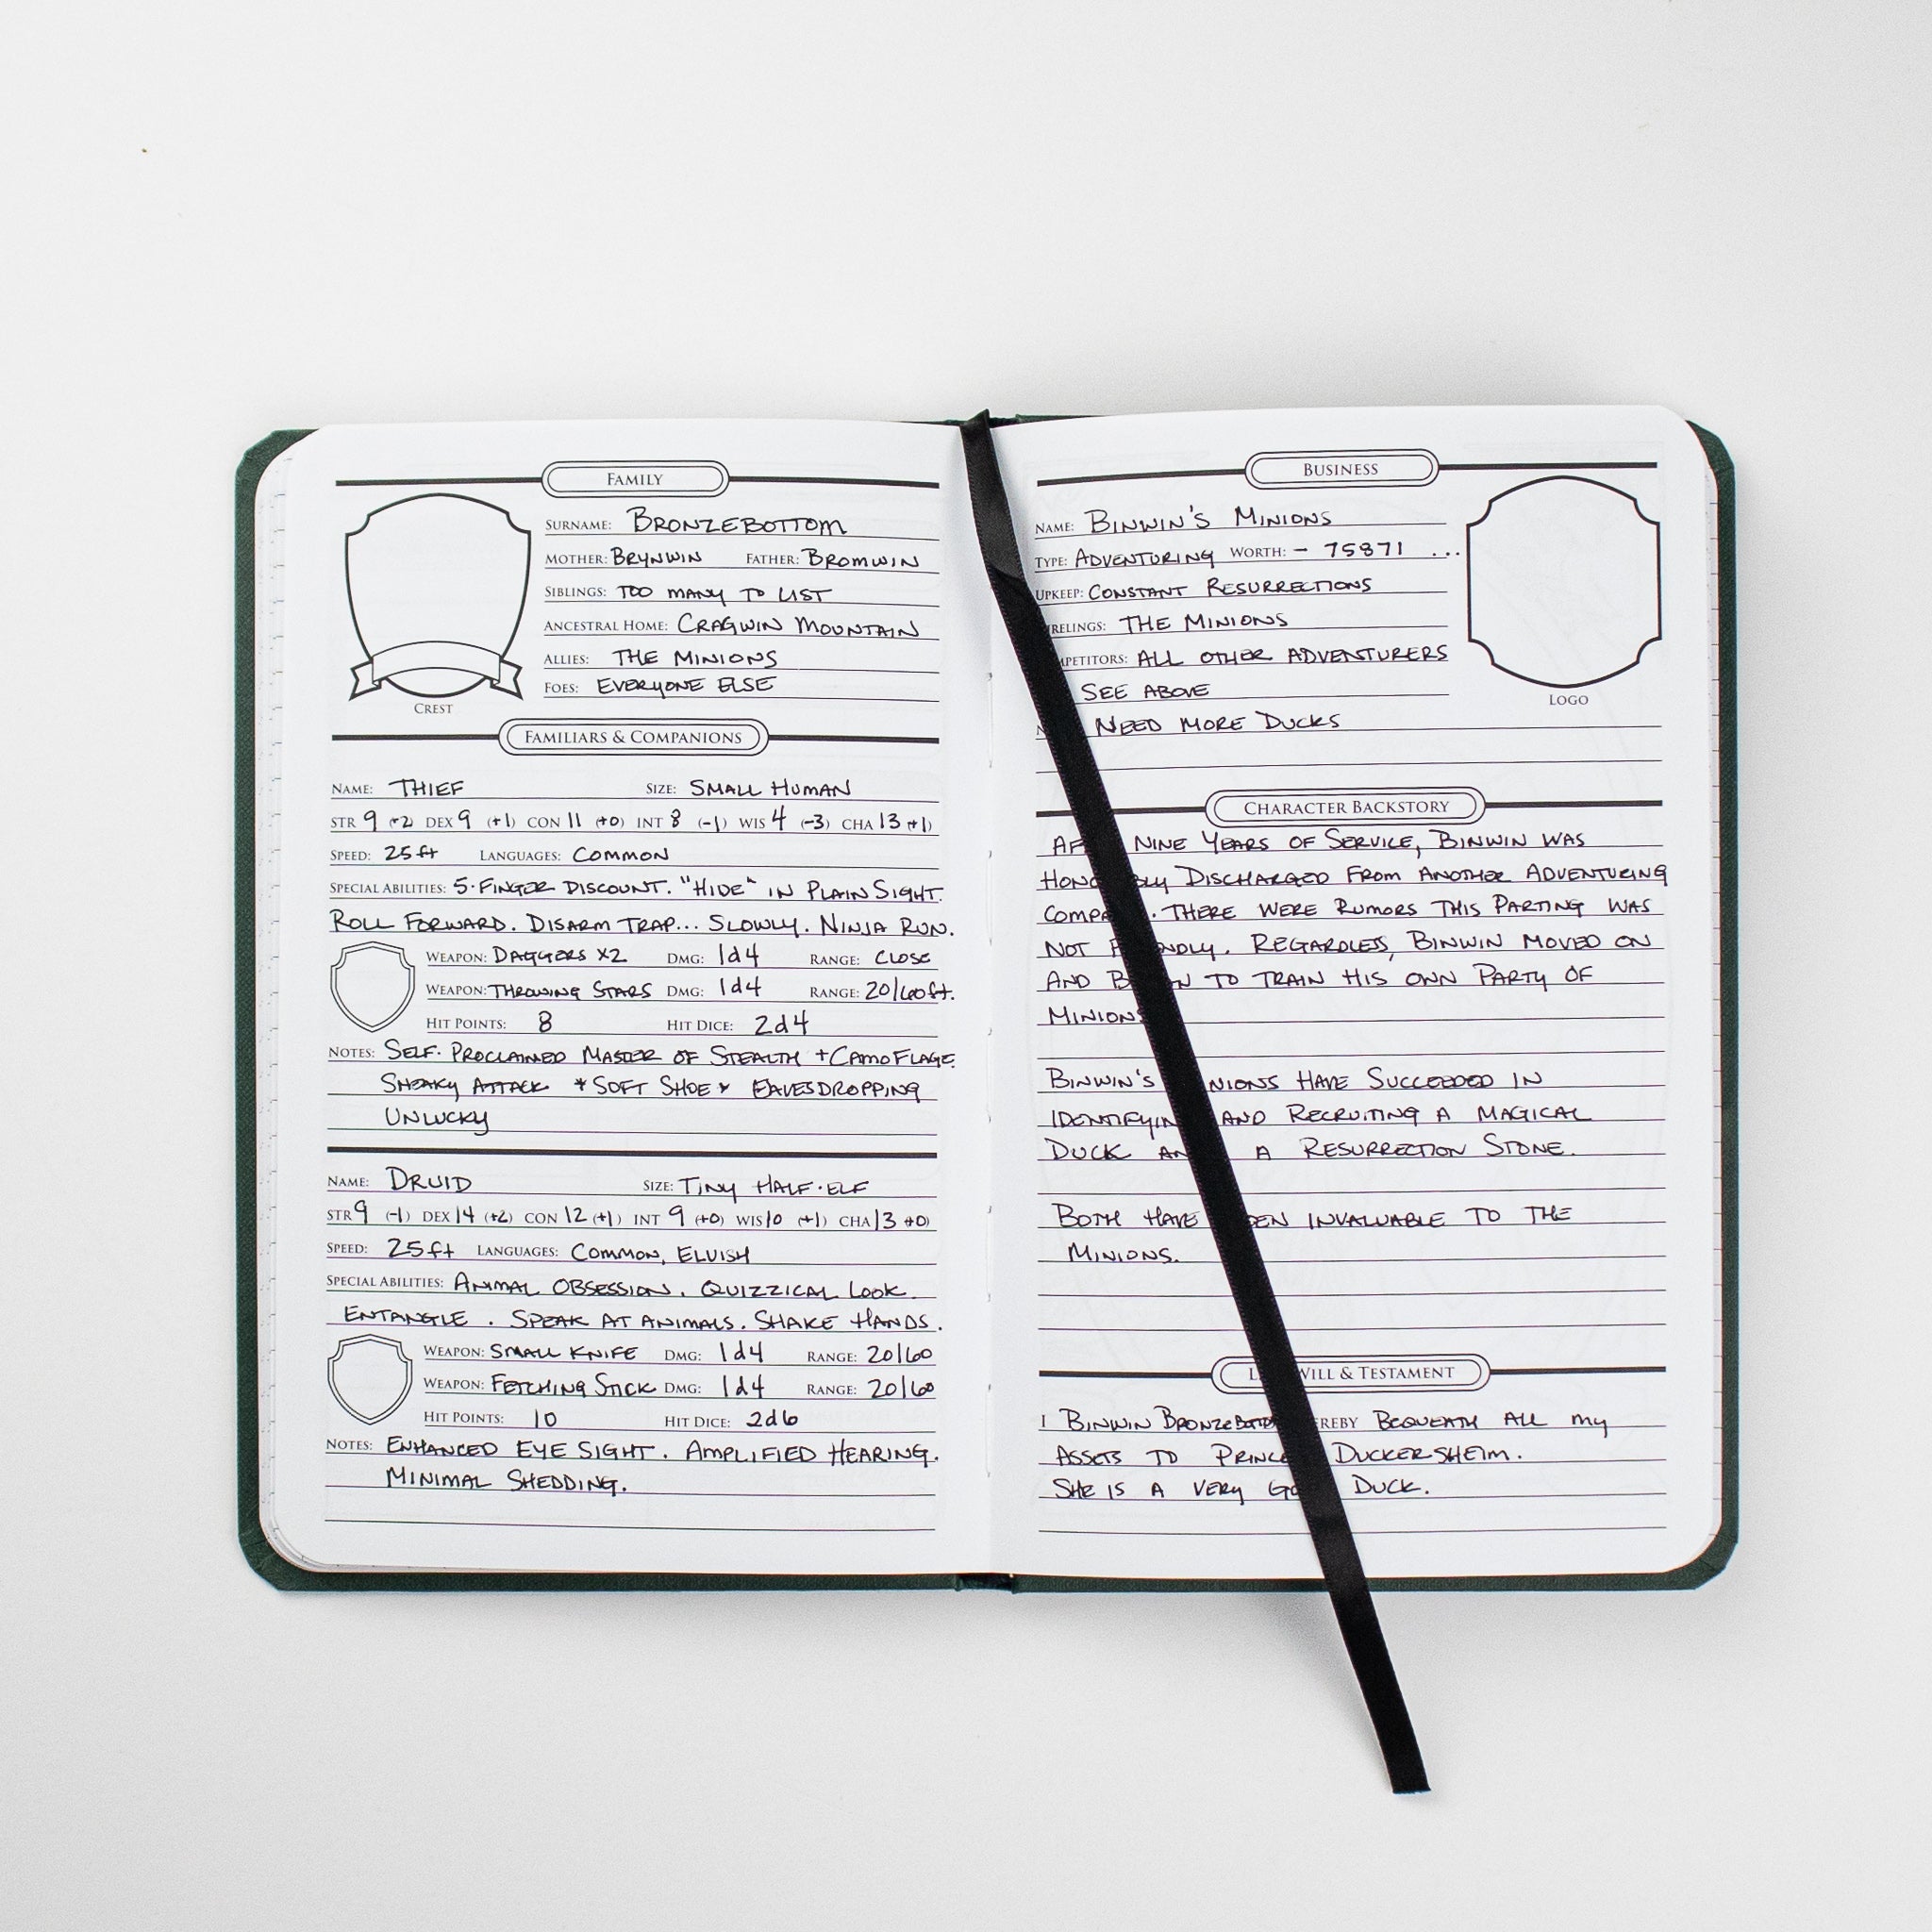 FAMILY
SURNAME: BRONZEBOTTOM
MOTHER: BRYNWIN FATHER: BROMWIN
SIBLINGS: TOO MANY TO LIST
ANCESTRAL HOME: CRAGWIN MOUNTAIN
ALLIES: THE MINIONS
FOES: EVERYONE ELSE
CREST
FAMILIARS & COMPANIONS
NAME: THIEF SIZE: SMALL HUMAN
STR 9 (+2) DEX 9 (+1) CON 11 (+0) INT 8 (-1) WIS 4 (-3) CHA 13 (+1)
SPEED: 25ft LANGUAGES: COMMON
SPECIAL ABILITIES: 5·FINGER DISCOUNT. "HIDE" IN PLAIN SIGHT.
ROLL FORWARD. DISARM TRAP... SLOWLY. NINJA RUN.
WEAPON: DAGGERS X2 DMG: 1d4 RANGE: CLOSE
WEAPON: THROWING STARS DMG: 1d4 RANGE: 20/60ft.
HIT POINTS: 8 HIT DICE: 2d4
NOTES: SELF·PROCLAIMED MASTER OF STEALTH + CAMOFLAGE.
SNEAKY ATTACK * SOFT SHOE * EAVESDROPPING
UNLUCKY
NAME: DRUID SIZE: TINY HALF·ELF
STR 9 (-1) DEX 14 (+2) CON 12 (+1) INT 9 (+0) WIS 10 (+1) CHA 13 (+0)
SPEED: 25ft LANGUAGES: COMMON, ELVISH
SPECIAL ABILITIES: ANIMAL OBSESSION. QUIZZICAL LOOK.
ENTANGLE. SPEAK AT ANIMALS. SHAKE HANDS.
WEAPON: SMALL KNIFE DMG: 1d4 RANGE: 20/60
WEAPON: FETCHING STICK DMG: 1d4 RANGE: 20/60
HIT POINTS: 10 HIT DICE: 2d6
NOTES: ENHANCED EYE SIGHT. AMPLIFIED HEARING.
MINIMAL SHEDDING.
BUSINESS
NAME: BINWIN'S MINIONS
TYPE: ADVENTURING WORTH: - 75871 ...
UPKEEP: CONSTANT RESURRECTIONS
RELINGS: THE MINIONS
PETITORS: ALL OTHER ADVENTURERS
SEE ABOVE
NEED MORE DUCKS
LOGO
CHARACTER BACKSTORY
AF NINE YEARS OF SERVICE, BINWIN WAS
HONO BLY DISCHARGED FROM ANOTHER ADVENTURING
COMPA . THERE WERE RUMORS THIS PARTING WAS
NOT F NDLY. REGARDLESS, BINWIN MOVED ON
AND B N TO TRAIN HIS OWN PARTY OF
MINIONS
BINWIN'S NIONS HAVE SUCCEEDED IN
IDENTIFYIN AND RECRUITING A MAGICAL
DUCK AN A RESURRECTION STONE.
BOTH HAVE EEN INVALUABLE TO THE
MINIONS.
L WILL & TESTAMENT
I BINWIN BRONZEBOTTO EREBY BEQUEATH ALL MY
ASSETS TO PRINCE DUCKERSHEIM.
SHE IS A VERY GO DUCK.